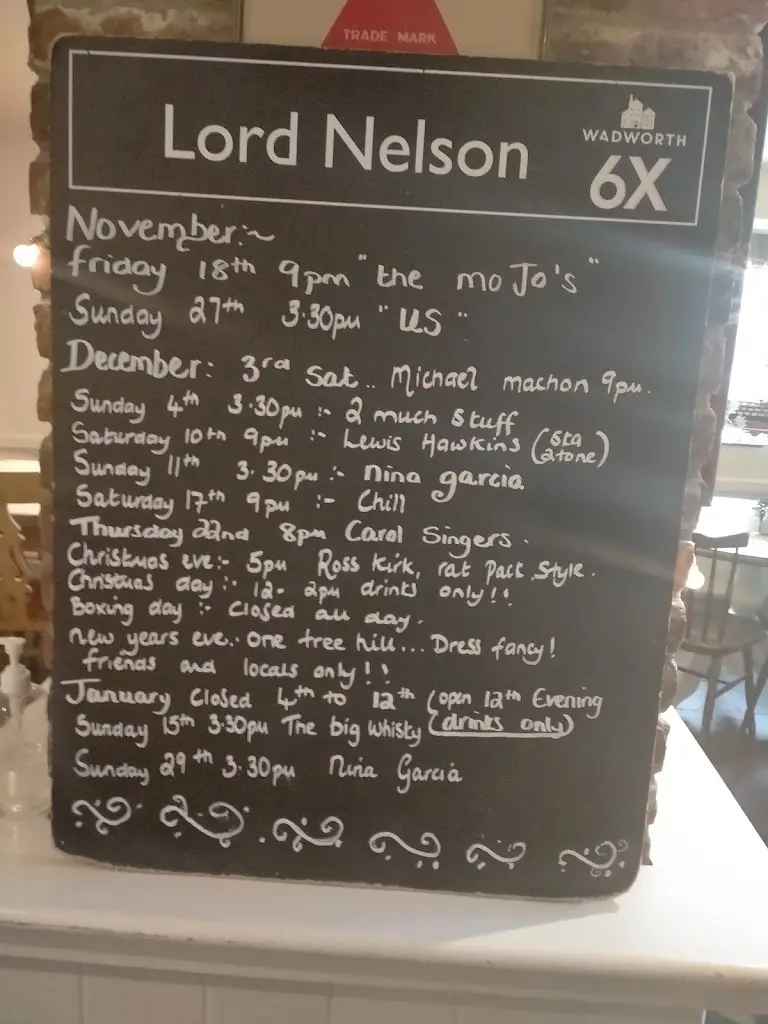 TRADE MARK
Lord Nelson
WADWORTH
6X
November:~
friday 18th 9pm "the mo Jo's"
Sunday 27th 3.30pm "US"
December: 3rd Sat.. Michael machon 9pm.
Sunday 4th 3.30pm :- 2 much Stuff
Saturday 10th 9pm :- Lewis Hawkins (Ska 2tone)
Sunday 11th 3.30pm :- nina garcia
Saturday 17th 9pm :- Chill
Thursday 22nd 8pm Carol Singers.
Christmas eve:- 5pm Ross Kirk, rat Pack Style.
Christmas day :- 12- 2pm drinks only!!
Boxing day :- Closed all day.
new years eve.. One tree hill... Dress fancy!
friends and locals only!!
January Closed 4th to 12th (open 12th Evening
Sunday 15th 3.30pm The big Whisky (drinks only)
Sunday 29th 3.30pm Nina Garcia